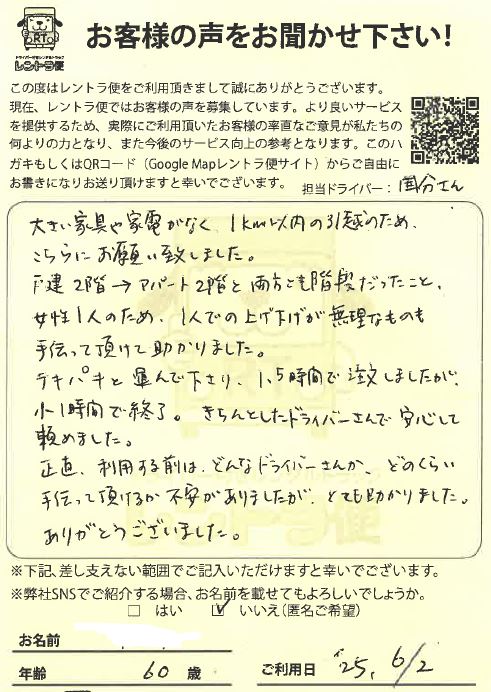 RT
ドライバー付きレンタルトラック
レントラ便
お客様の声をお聞かせ下さい!
この度はレントラ便をご利用頂きまして誠にありがとうございます。
現在、レントラ便ではお客様の声を募集しています。より良いサービス
を提供するため、実際にご利用頂いたお客様の率直なご意見が私たちの
何よりの力となり、また今後のサービス向上の参考となります。このハ
ガキもしくはQRコード（Google Mapレントラ便サイト）からご自由に
お書きになりお送り頂けますと幸いでございます。
担当ドライバー：国分さん
大きい家具や家電がなく、1km以内の引越のため、
こちらにお願い致しました。
戸建2階→アパート2階と両方とも階段だったこと、
女性1人のため、1人での上げ下げが無理なものも
手伝って頂けて助かりました。
テキパキと運んで下さり、1.5時間で注文しましたが、
小1時間で終了。きちんとしたドライバーさんで安心して
頼めました。
正直、利用する前は、どんなドライバーさんか、どのくらい
手伝って頂けるか不安がありましたが、とても助かりました。
ありがとうございました。
※下記、差し支えない範囲でご記入いただけますと幸いでございます。
※弊社SNSでご紹介する場合、お名前を載せてもよろしいでしょうか。
□ はい ☑ いいえ（匿名ご希望）
お名前
年齢 60 歳 ご利用日 '25, 6/2